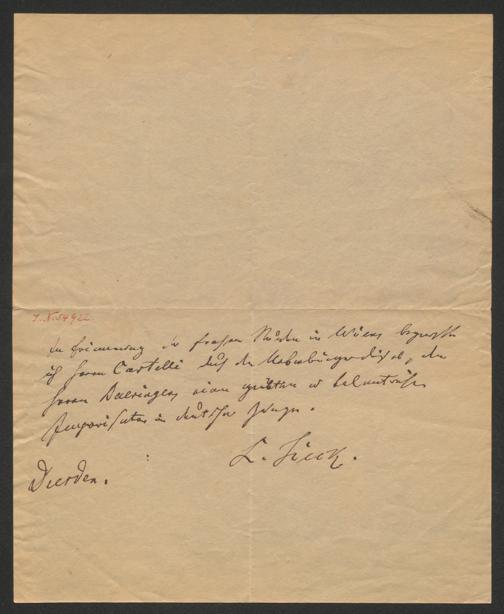 I. N. 54922
In Erinnerung der frohen Stunden in Wien begrüße
ich Herrn Castelli durch den Ueberbringer dieses, den
Herrn Baeringer, einen
Improvisator in deutscher Zunge.
L. Tieck.
Dresden.